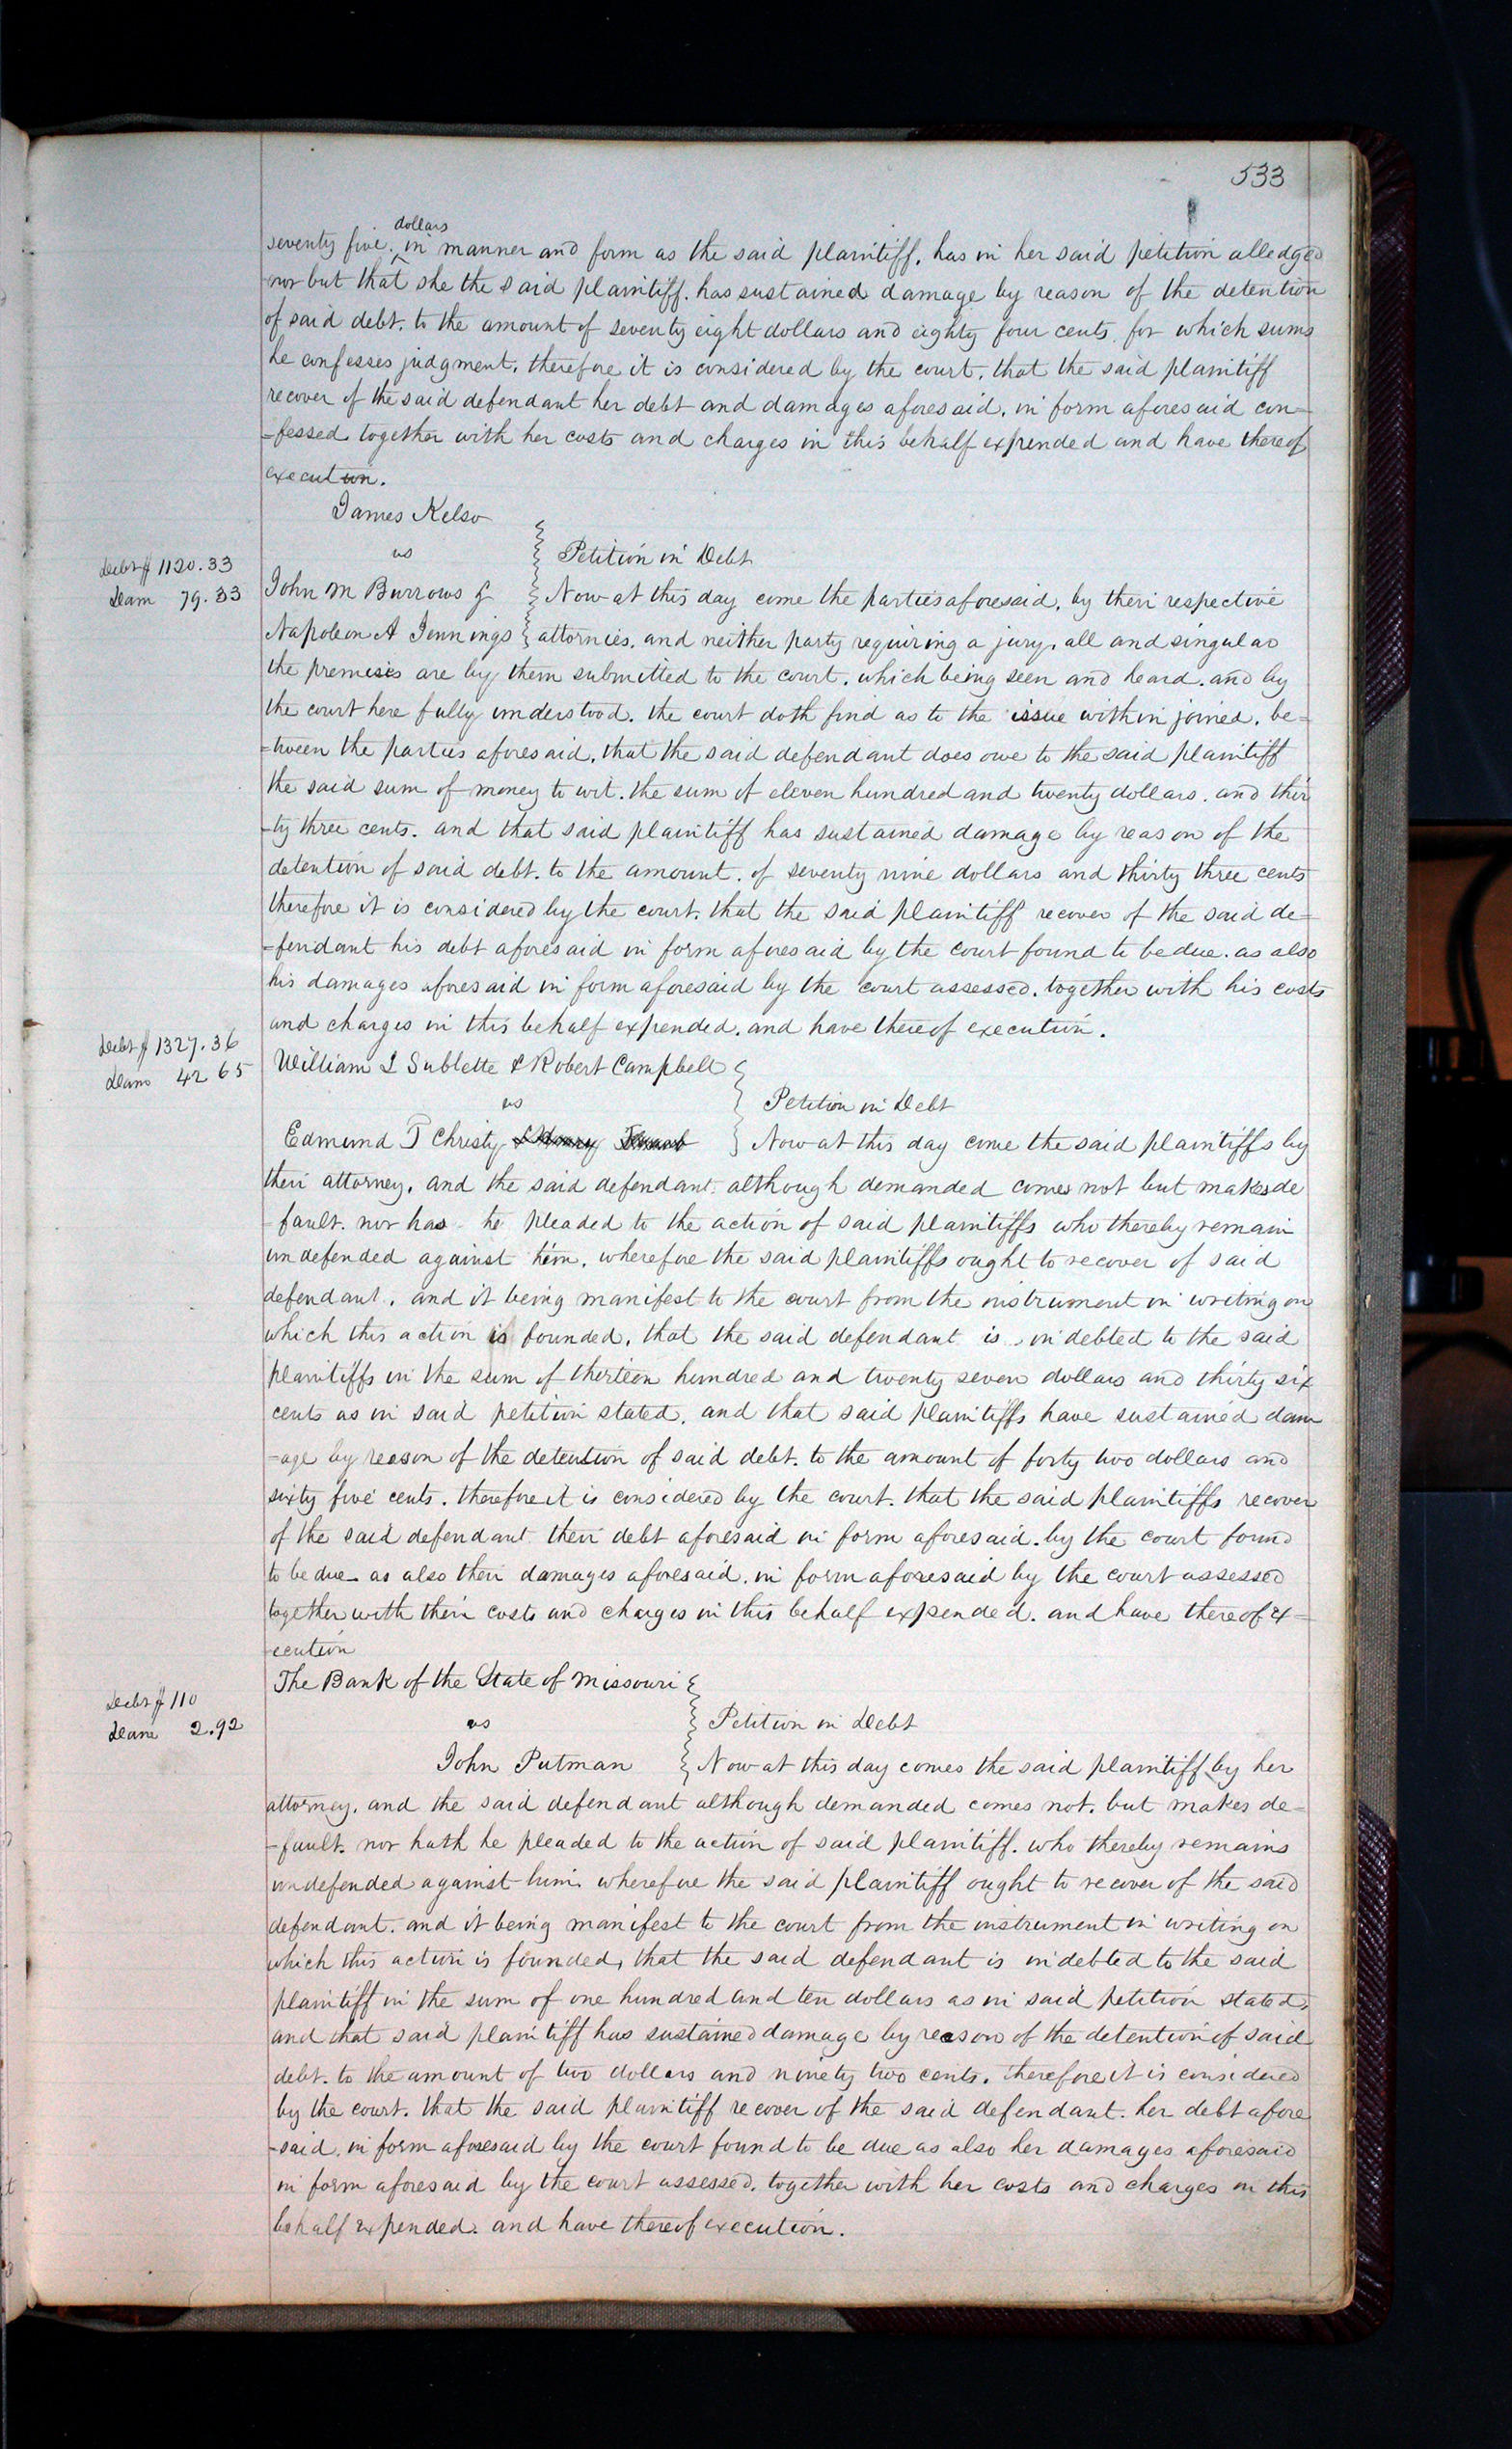 533
dollars
seventy five in manner and form as the said plaintiff. has in her said petition alledged
nor but that she the said plaintiff. has sustained damage by reason of the detention
of said debt. to the amount of seventy eight dollars and eighty four cents. for which sums
he confesses judgment. therefore it is considered by the court. that the said plaintiff
recover of the said defendant her debt and damages aforesaid. in form aforesaid con=
=fessed together with her costs and charges in this behalf expended and have thereof
execution.
James Kelso
vs
Petition in Debt
Debt $ 1120.33
Dam 79.33
John M Burrows &
Now at this day come the parties aforesaid, by their respective
Napoleon A Jennings
attornies. and neither party requiring a jury. all and singular
the premises are by them submitted to the court. which being seen and heard. and by
the court here fully understood. the court doth find as to the issue within joined. be=
=tween the parties aforesaid. that the said defendant does owe to the said plaintiff
the said sum of money to wit. the sum of eleven hundred and twenty dollars. and thir
-ty three cents. and that said plaintiff has sustained damage by reason of the
detention of said debt. to the amount. of seventy nine dollars and thirty three cents
therefore it is considered by the court. that the said plaintiff recover of the said de=
=fendant his debt aforesaid in form aforesaid by the court found to be due. as also
his damages aforesaid in form aforesaid by the court assessed. together with his costs
and charges in this behalf expended. and have thereof execution.
Debt $ 1327.36
Dam 42 65
William L Sublette & Robert Campbell
vs
Petition in Debt
Edmund T Christy
Now at this day come the said plaintiffs by
their attorney, and the said defendant although demanded comes not but makes de
fault. nor has he pleaded to the action of said plaintiffs who thereby remain
undefended against him. wherefore the said plaintiffs ought to recover of said
defendant. and it being manifest to the court from the instrument in writing on
which this action is founded, that the said defendant is indebted to the said
plaintiffs in the sum of thirteen hundred and twenty seven dollars and thirty six
cents as in said petition stated. and that said plaintiffs have sustained dam
-age by reason of the detention of said debt. to the amount of forty two dollars and
sixty five cents. therefore it is considered by the court. that the said plaintiffs recover
of the said defendant their debt aforesaid in form aforesaid. by the court found
to be due as also their damages aforesaid. in form aforesaid by the court assessed
together with their costs and charges in this behalf expended. and have thereof ex=
ecution
The Bank of the State of Missouri
Debt $ 110
Dam 2.92
vs
Petition in Debt
John Putman
Now at this day comes the said plaintiff by her
attorney. and the said defendant although demanded comes not. but makes de=
-fault. nor hath he pleaded to the action of said plaintiff. who thereby remains
undefended against him. wherefore the said plaintiff ought to recover of the said
defendant. and it being manifest to the court from the instrument in writing on
which this action is founded, that the said defendant is indebted to the said
plaintiff in the sum of one hundred and ten dollars as in said petition stated,
and that said plaintiff has sustained damage by reason of the detention of said
debt. to the amount of two dollars and ninety two cents. therefore it is considered
by the court. that the said plaintiff recover of the said defendant. her debt afore
-said. in form aforesaid by the court found to be due as also her damages aforesaid
in form aforesaid by the court assessed. together with her costs and charges in this
behalf expended. and have thereof execution.